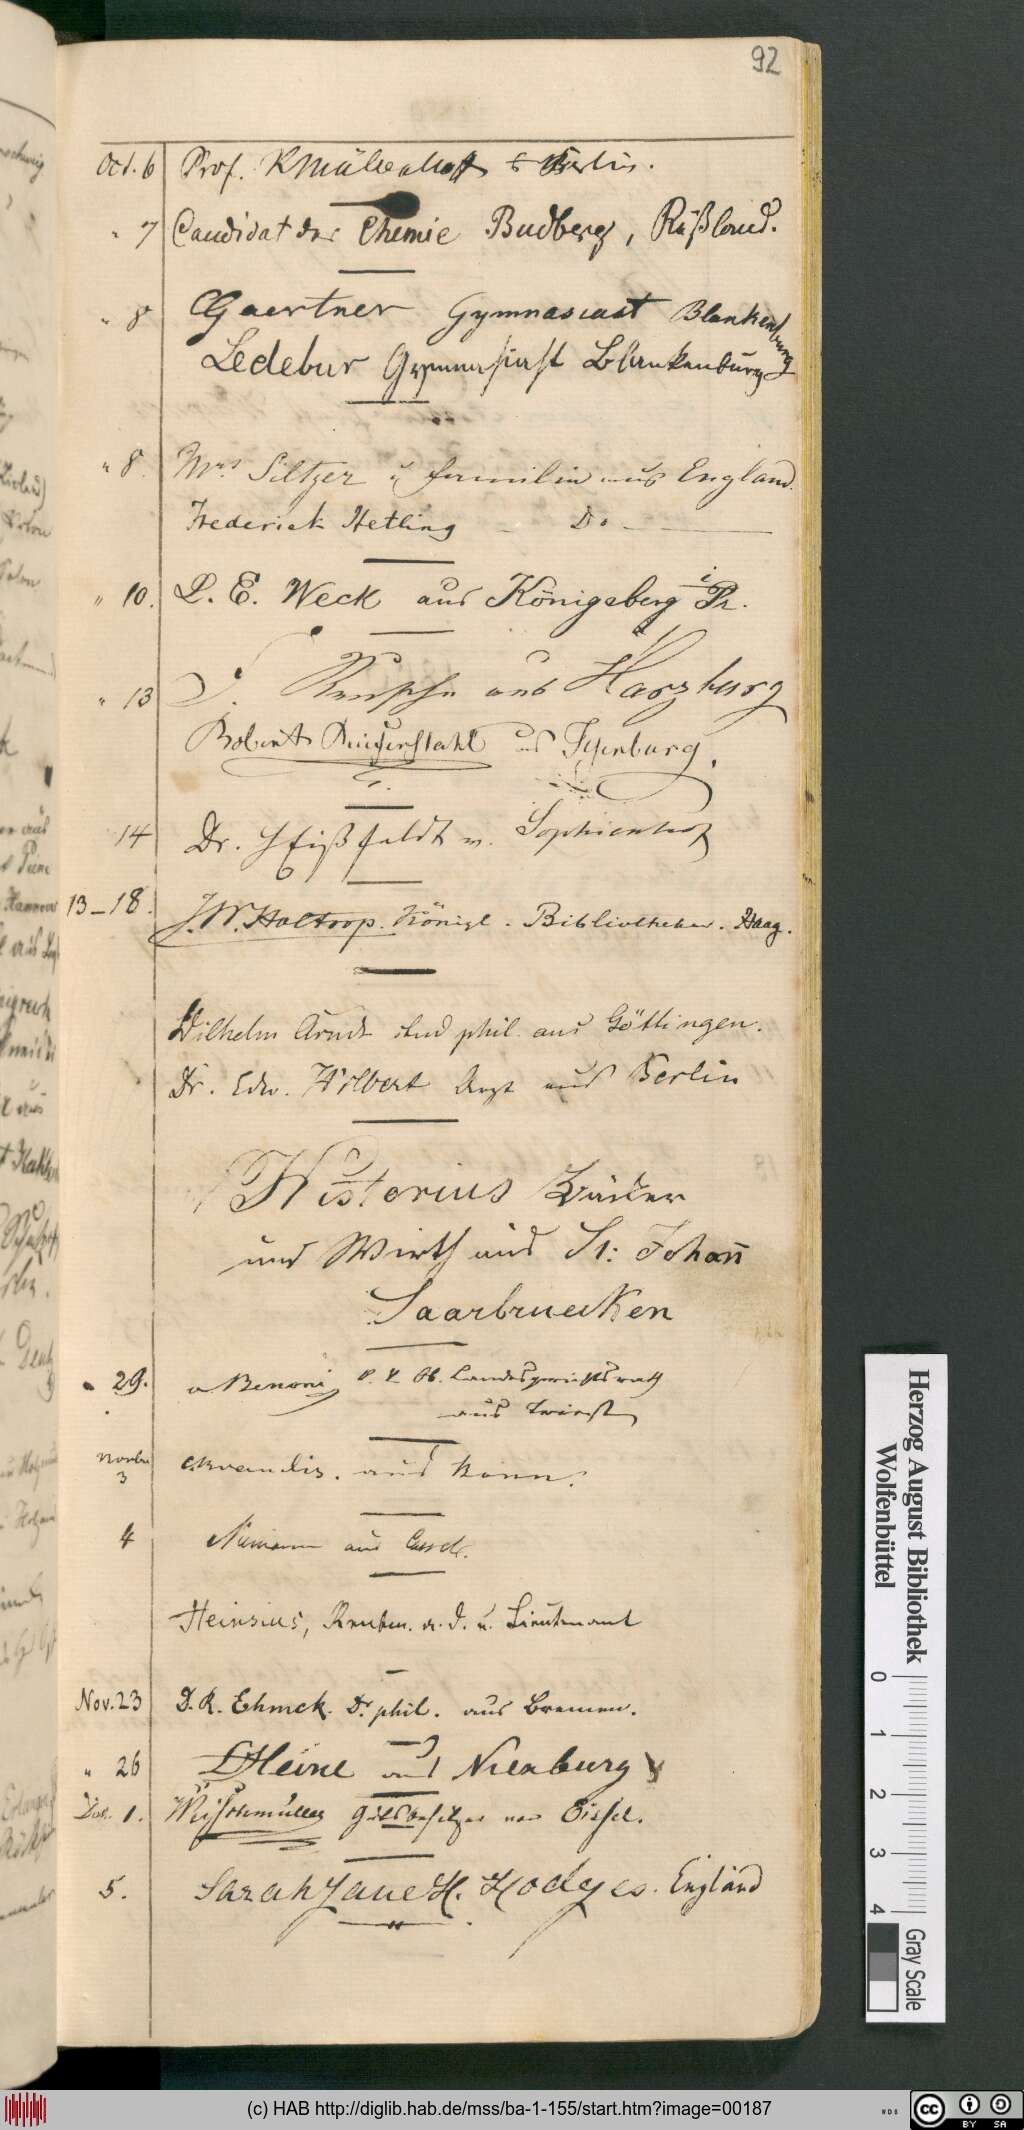 92
Oct. 6 Prof. KMüllenhoff Berlin.
" 7 Candidat der Chemie Budberg, Rußland.
" 8 Gaertner Gymnasiast Blankenburg
Ledebur Gymnasiast Blankenburg
" 8. Mrs Siltzer u familie aus England.
Frederick Hetling — Do —
" 10. L. E. Weck aus Königsberg i Pr.
" 13 aus Harzburg
Robert aus Ilsenburg.
14 Dr. v. Sophienhof
13–18. J.W. Holtrop. Königl. Bibliothekar. Haag.
Wilhelm Arndt stud phil. aus Göttingen.
Dr. Edw. Hilbert Arzt aus Berlin
Pistorius Bäcker
und Wirth aus St: Johan̄
Saarbruecken
" 29. Landesgerichtsrath
aus
Novbr
3 aus Bonn.
4 Niemann aus Cassel.
Heinsius, a. D. u. Lieutenant
Nov. 23 D. R. Ehmck. Dr phil. aus Bremen.
" 26 Heine aus Nienburg
Dec. 1. Gutsbesitzer von
5. Sarah Jane H. Hodges. England
Herzog August Bibliothek
Wolfenbüttel
0 1 2 3 4
Gray Scale
(c) HAB http://diglib.hab.de/mss/ba-1-155/start.htm?image=00187
WDB
cc BY SA